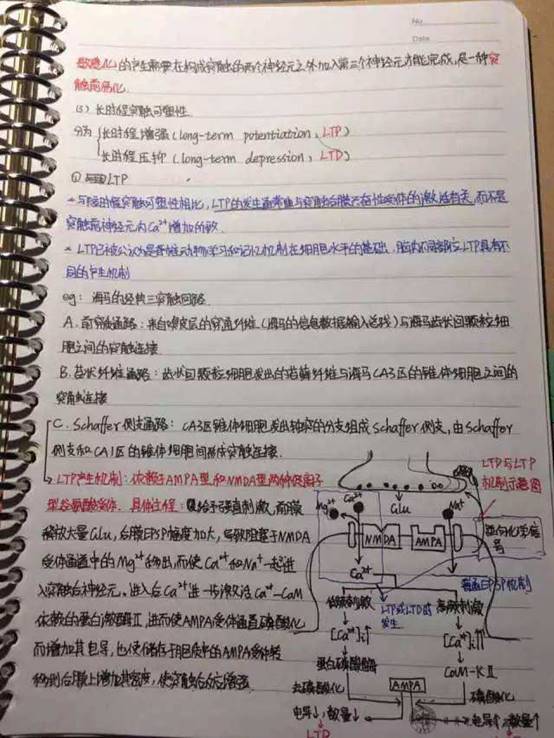 No
Date
敏感化的产生需要在构成突触的两个神经元之外加入第三个神经元方能完成,是一种突
触前易化。
(3) 长时程突触可塑性
分为 长时程增强 (long-term potentiation, LTP)
长时程压抑 (long-term depression, LTD)
LTP
与短时程突触可塑性相比, LTP的发生通常是与突触后膜兴奋性受体的激活有关,而不是
突触前神经元内Ca²⁺增加所致
LTP已被公认为是脊椎动物学习和记忆机制在细胞水平的基础. 脑内不同部位LTP具有不
同的产生机制
eg: 海马的经典三突触回路
A. 前穿质通路: 来自嗅皮层的穿通纤维 (海马的信息数据输入总线) 与海马齿状回颗粒细
胞之间的突触连接
B. 苔状纤维通路: 齿状回颗粒细胞发出的苔藓纤维与海马CA3区的锥体细胞之间的
突触连接
C. Schaffer侧支通路: CA3区锥体细胞发出轴突的分支组成schaffer侧支, 由schaffer
侧支和CA1区的锥体细胞间形成突触连接.
LTP产生机制: 依赖于AMPA型和NMDA型两种亲离子
型谷氨酸受体. 具体过程: 给予强直刺激, 前膜
释放大量Glu, 后膜EPSP幅度加大, 导致阻塞于NMDA
受体通道中的Mg²⁺移出,而使Ca²⁺和Na⁺一起进
入突触后神经元. 进入后Ca²⁺进一步激活Ca²⁺-CaM
依赖的蛋白激酶Ⅱ, 进而使AMPA受体通道磷酸化
而增加其电导, 也使储存在于胞质中的AMPA受体转
移到后膜上增加其密度, 使突触后反应增强
LTD与LTP
机制示意图
Mg²⁺
Ca²⁺
Glu
Na⁺
NMDA
AMPA
Ca²⁺
EPSP机制
低频刺激
LTP或LTD的
发生
高频刺激
[Ca²⁺]i↑
[Ca²⁺]i↑↑
蛋白磷酸酶
CaM-KⅡ
去磷酸化
AMPA
磷酸化
电导↓, 数量↓
电导↑ 数量↑
LTD
LTP